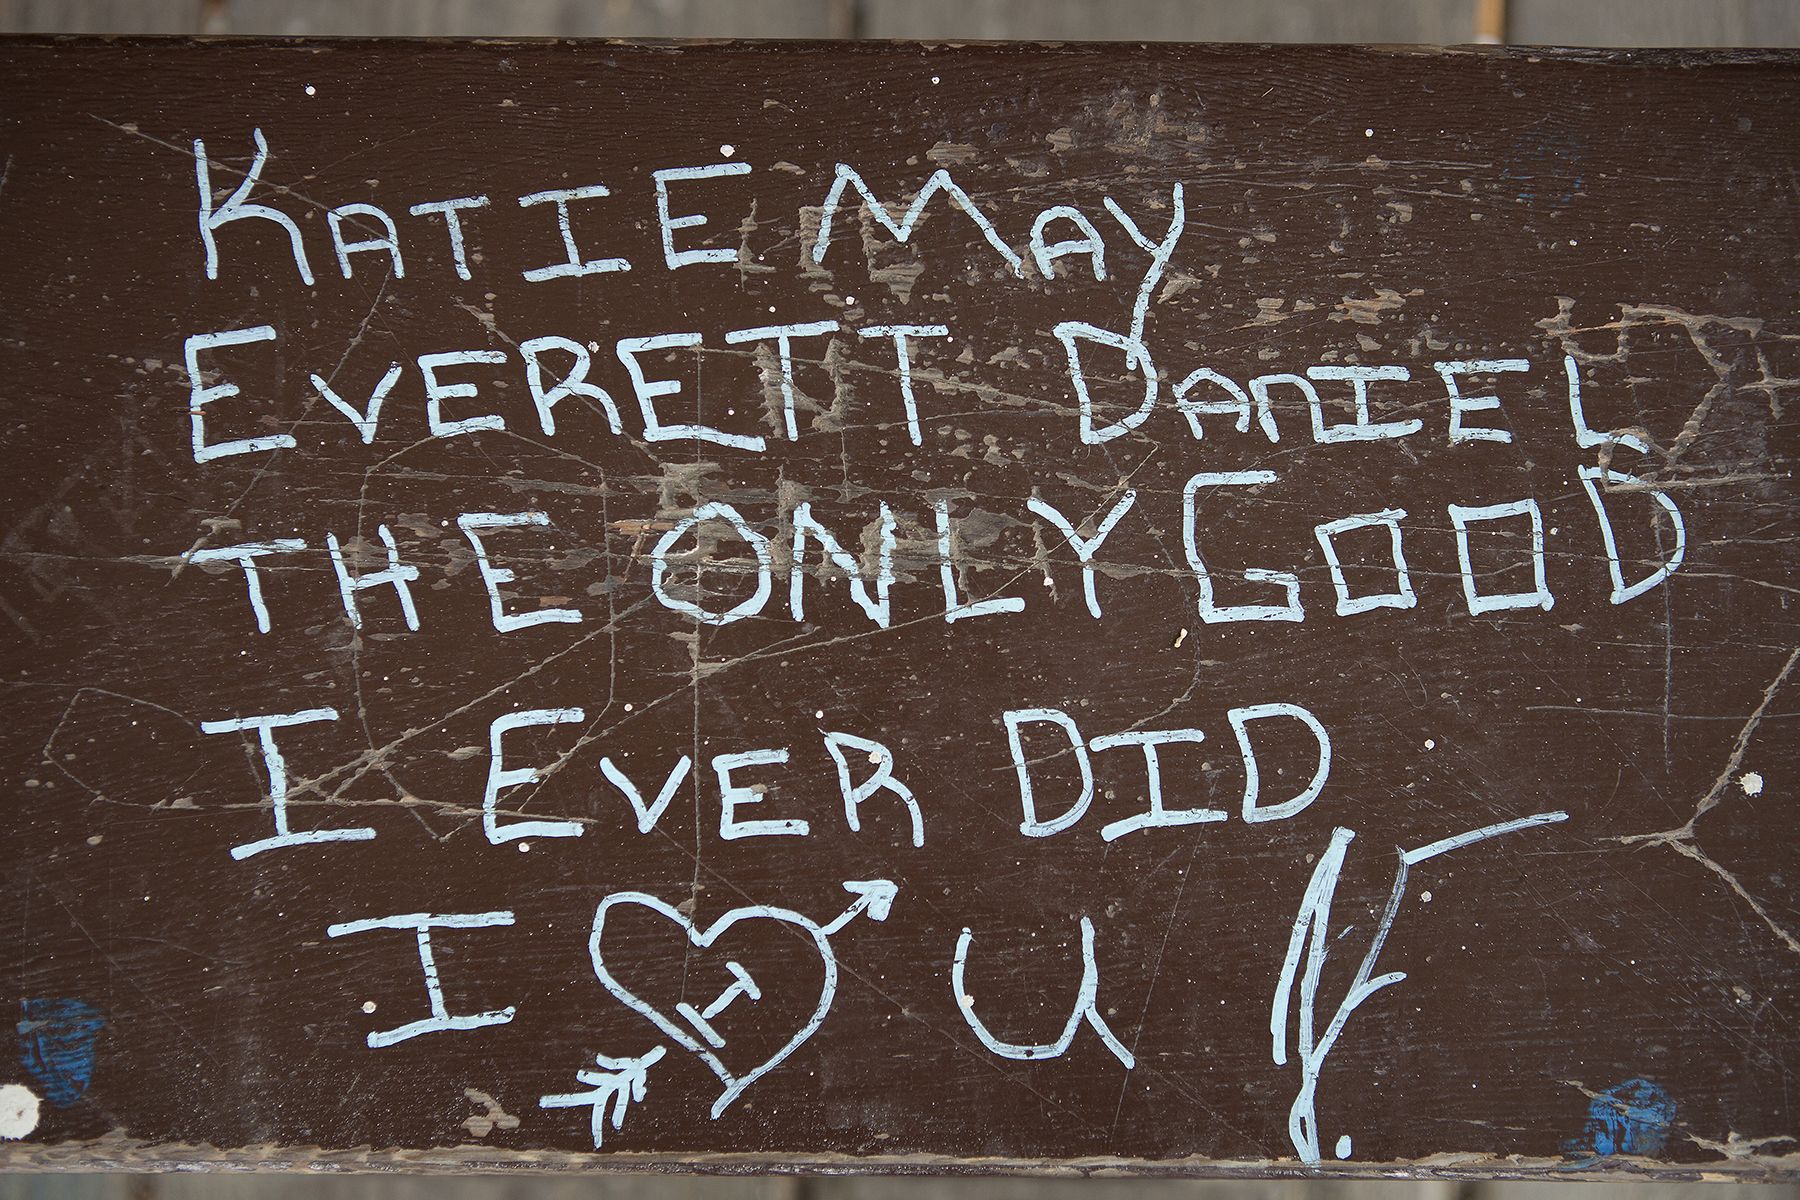 KATIE MAY
EVERETT DANIEL
THE ONLY GOOD
I EVER DID
I I U